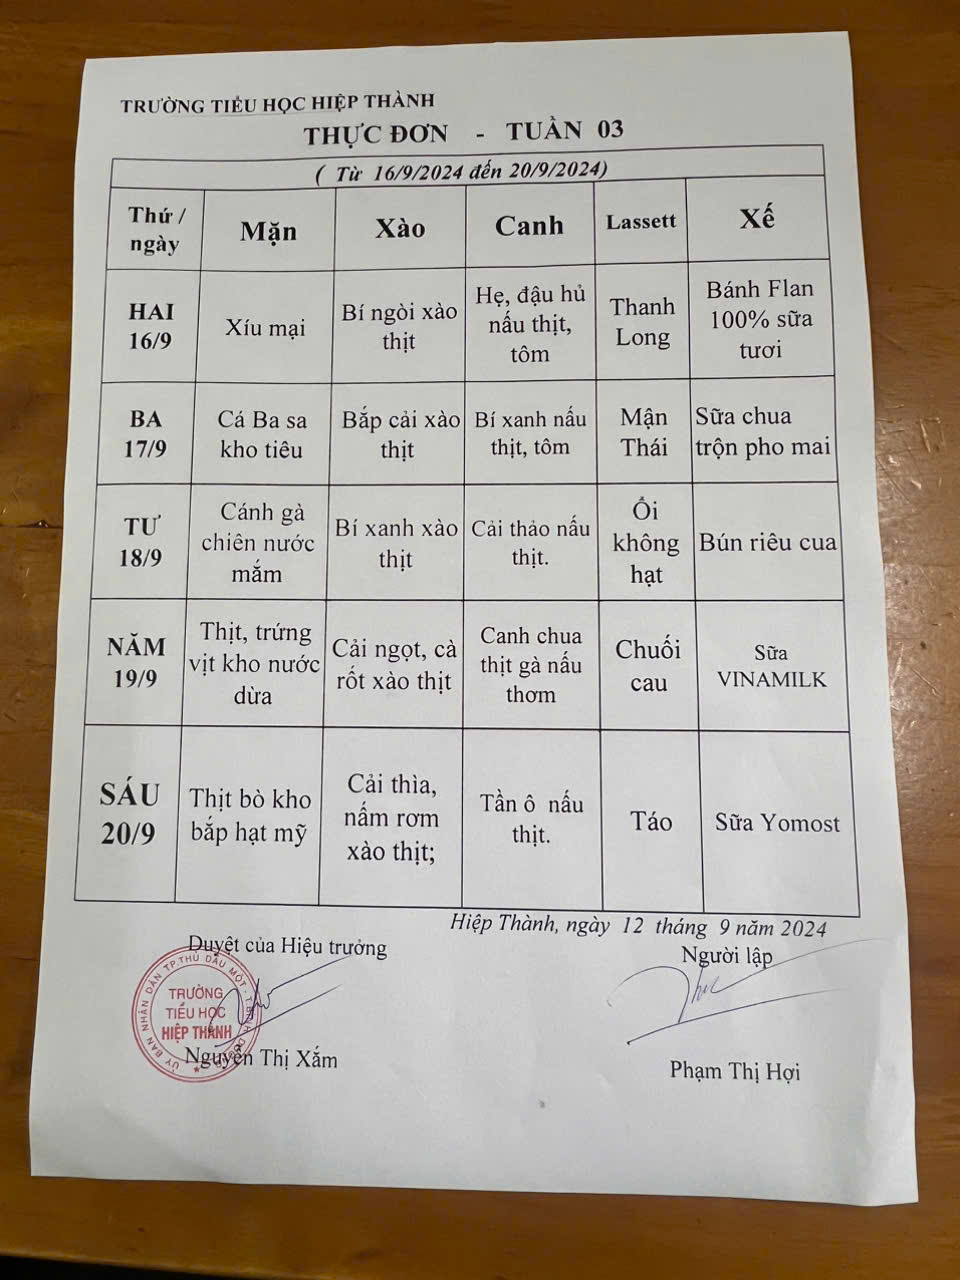 TRƯỜNG TIỂU HỌC HIỆP THÀNH
THỰC ĐƠN - TUẦN 03
( Từ 16/9/2024 đến 20/9/2024)
Thứ /
ngày
Mặn
Xào
Canh
Lassett
Xế
HAI
16/9
Xíu mại
Bí ngòi xào
thịt
Hẹ, đậu hủ
nấu thịt,
tôm
Thanh
Long
Bánh Flan
100% sữa
tươi
BA
17/9
Cá Ba sa
kho tiêu
Bắp cải xào
thịt
Bí xanh nấu
thịt, tôm
Mận
Thái
Sữa chua
trộn pho mai
TƯ
18/9
Cánh gà
chiên nước
mắm
Bí xanh xào
thịt
Cải thảo nấu
thịt.
Ổi
không
hạt
Bún riêu cua
NĂM
19/9
Thịt, trứng
vịt kho nước
dừa
Cải ngọt, cà
rốt xào thịt
Canh chua
thịt gà nấu
thơm
Chuối
cau
Sữa
VINAMILK
SÁU
20/9
Thịt bò kho
bắp hạt mỹ
Cải thìa,
nấm rơm
xào thịt;
Tần ô nấu
thịt.
Táo
Sữa Yomost
Hiệp Thành, ngày 12 tháng 9 năm 2024
Duyệt của Hiệu trưởng
Người lập
ỦY BAN NHÂN DÂN TP.THỦ DẦU MỘT
TRƯỜNG
TIỂU HỌC
HIỆP THÀNH
Nguyễn Thị Xắm
Phạm Thị Hợi